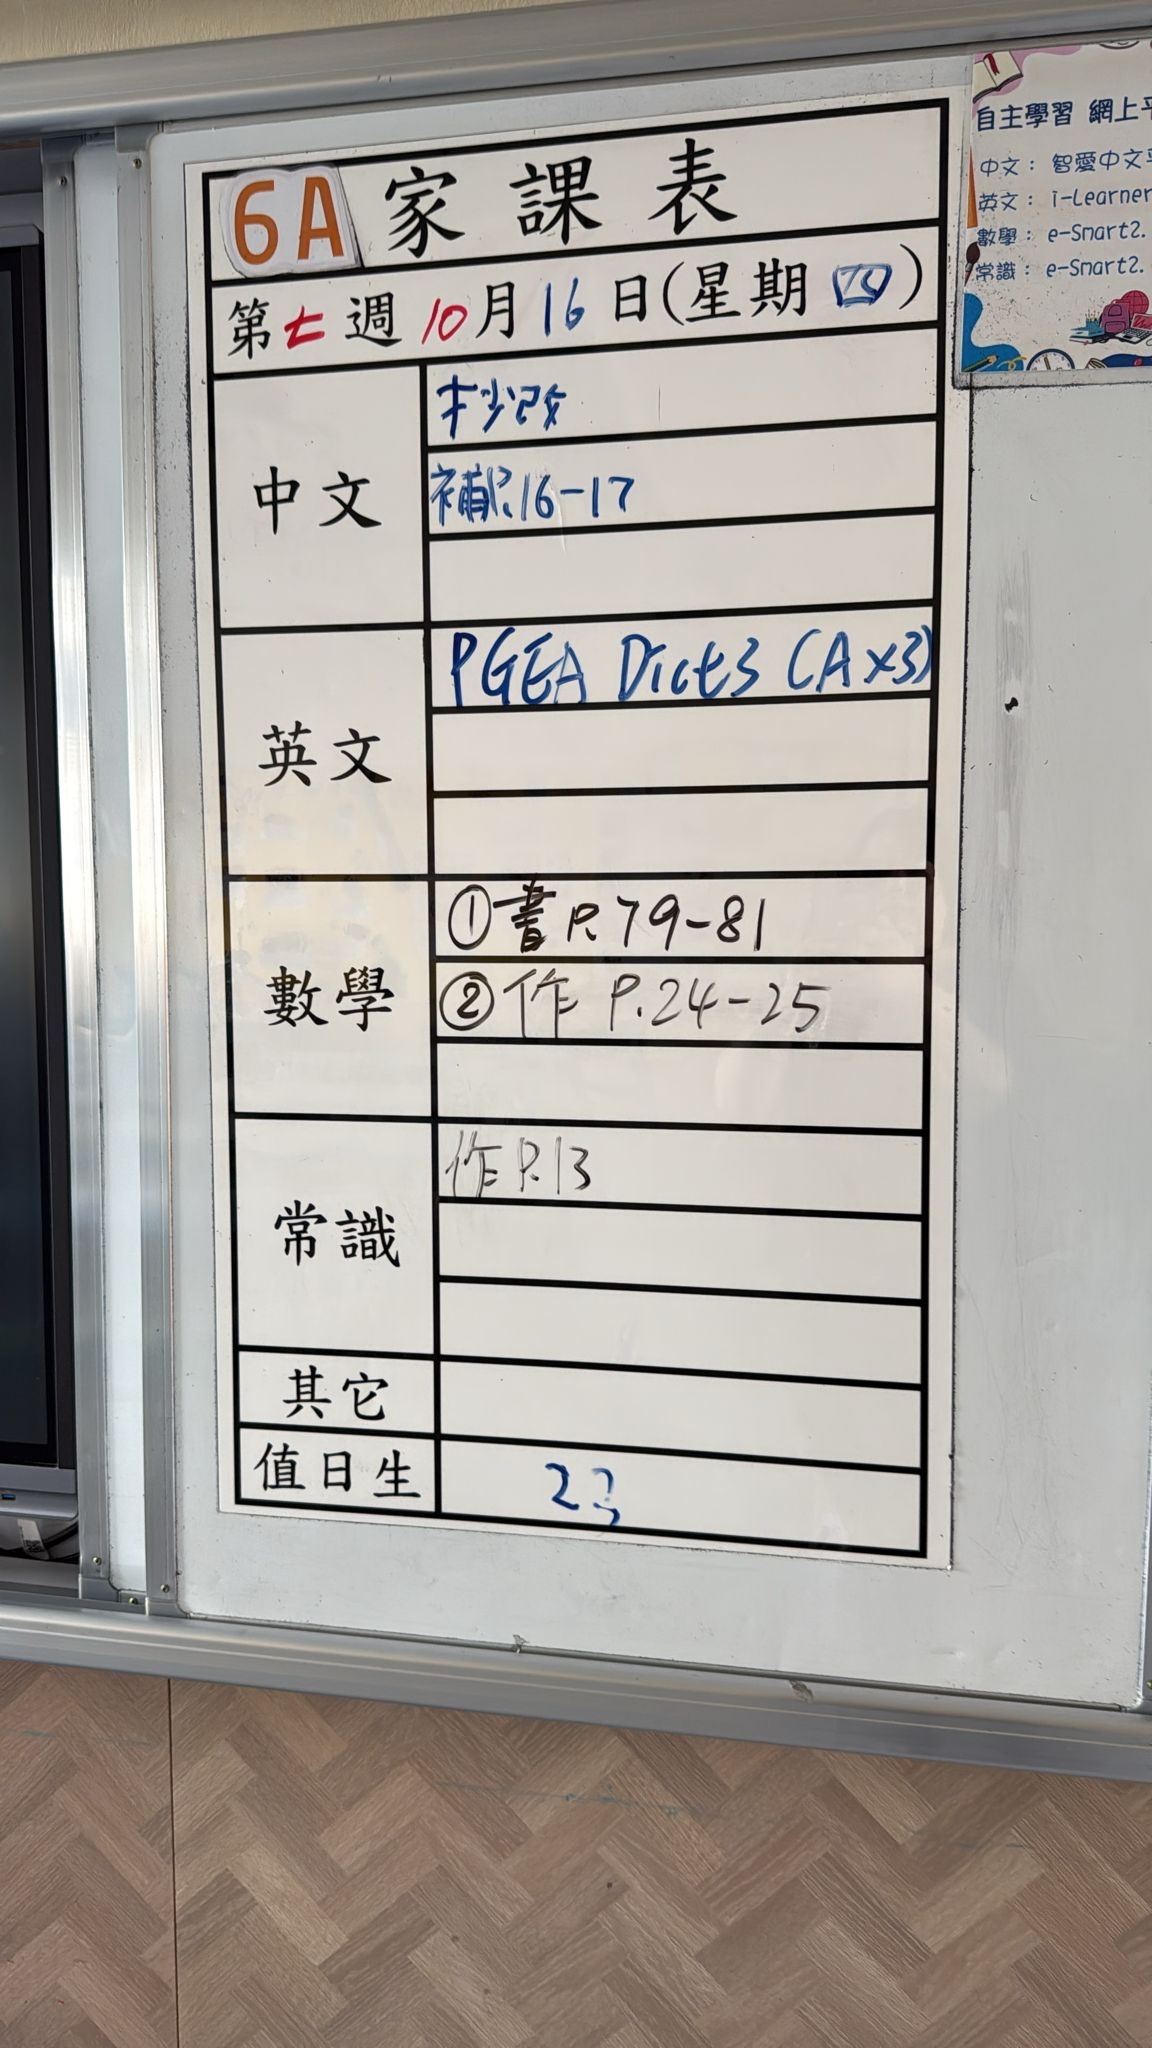 6A 家課表
第七週 10月16日(星期四)
中文
抄改
補P.16-17
英文
PGEA Dict3 (A×3)
數學
①書P.79-81
②作 P.24-25
常識
作P.13
其它
值日生
23
自主學習 網上平
中文：智愛中文平
英文：i-Learner
數學：e-Smart2.
常識：e-Smart2.